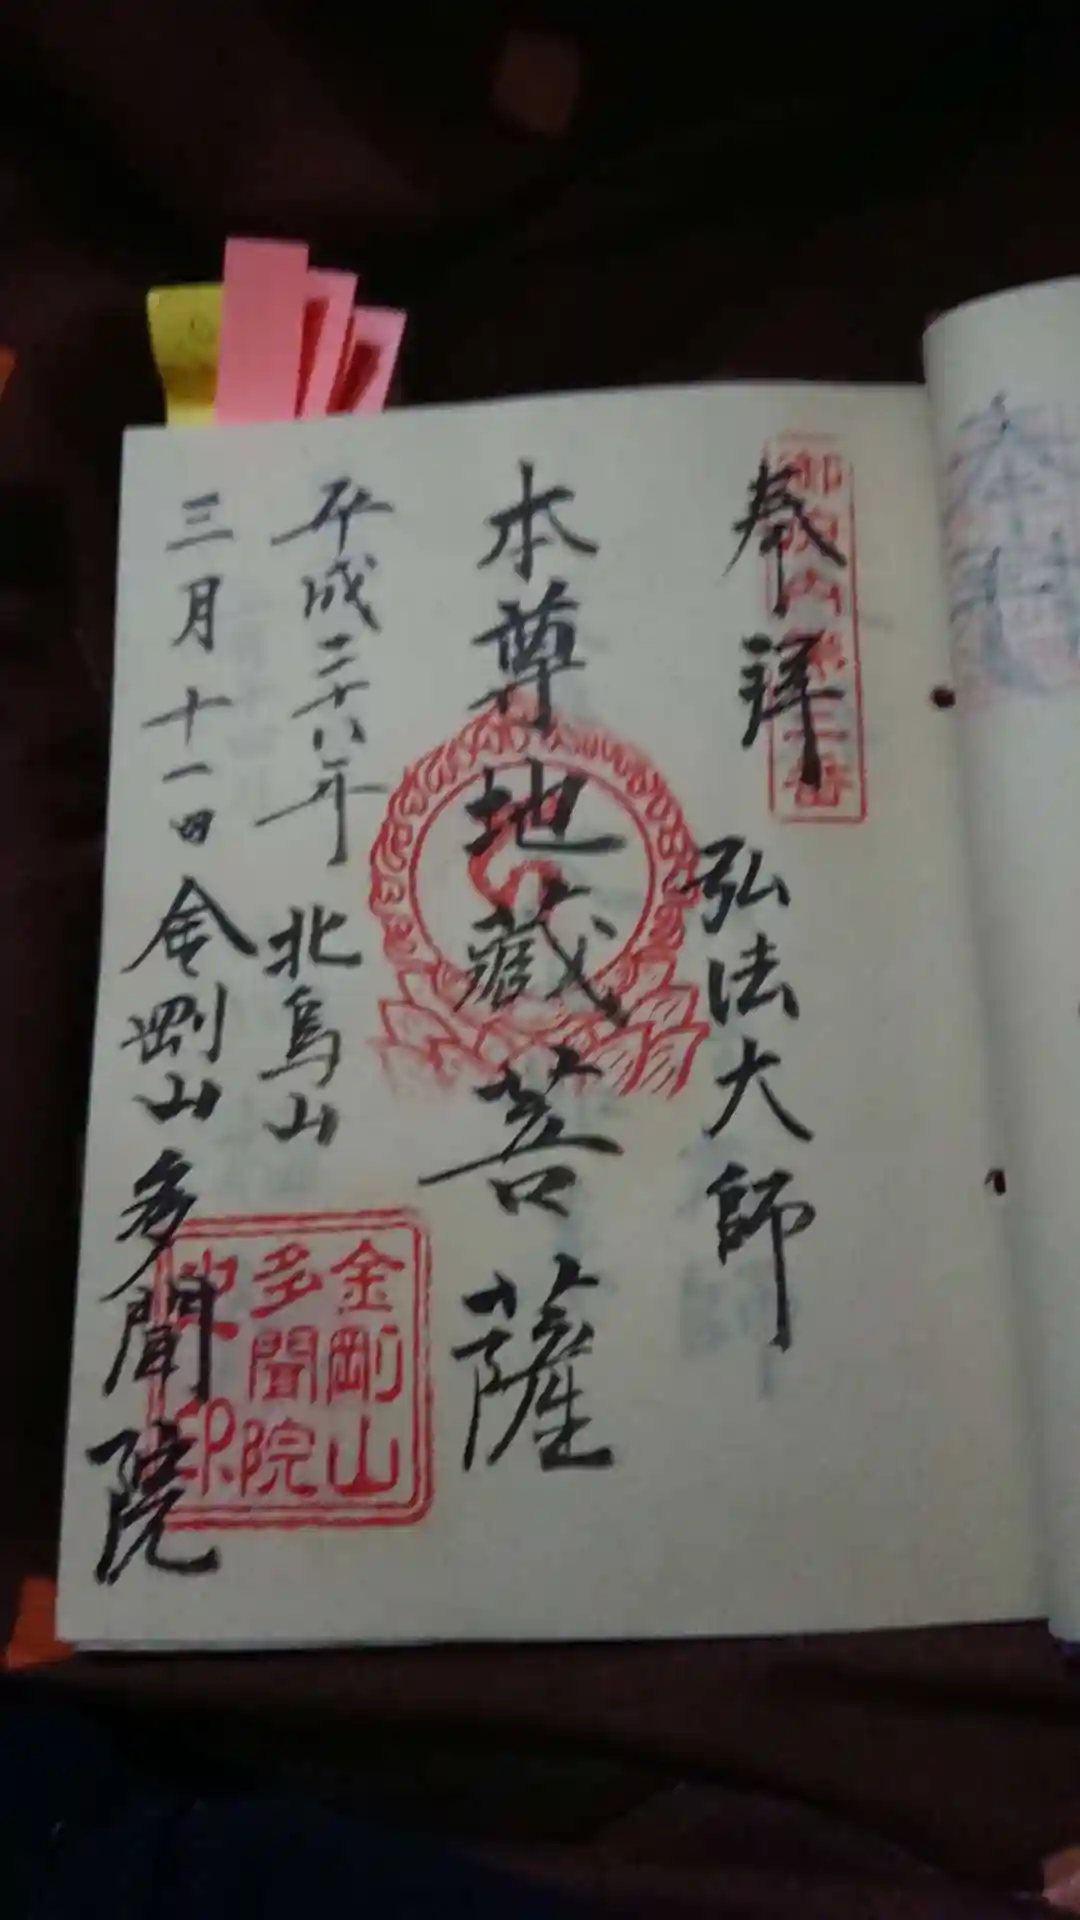 奉拝
弘法大師
本尊地蔵菩薩
平成二十八年
北烏山
三月十一日
金剛山多聞院
金剛山
多聞院
印